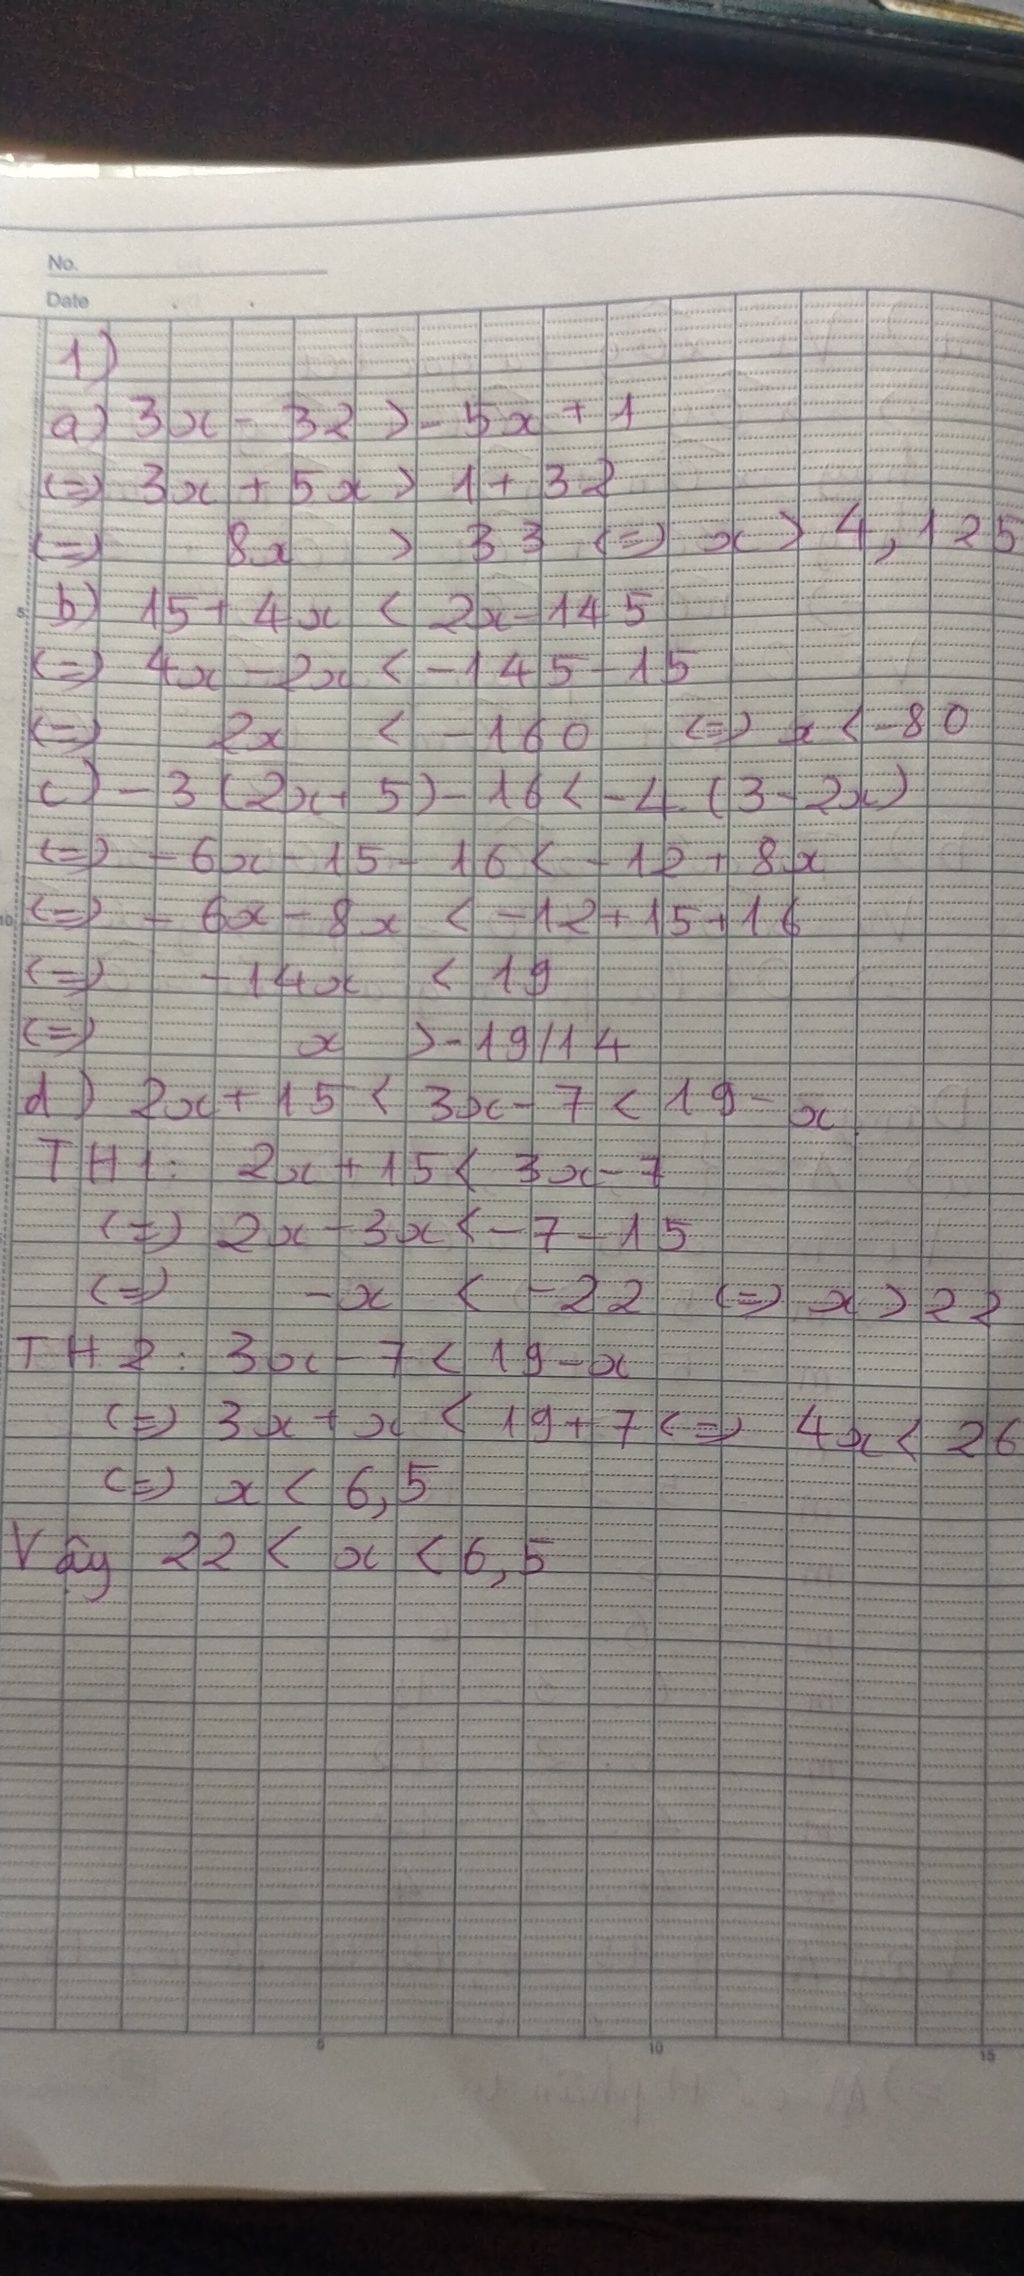 No.
Date
1)
a) 3x - 32 > - 5x + 1
<=> 3x + 5x > 1 + 32
<=> 8x > 33 <=> x > 4,125
5
b) 15 + 4x < 2x - 145
<=> 4x - 2x < -145 - 15
<=> 2x < -160 <=> x < -80
c) - 3 (2x + 5) - 16 < - 4 (3 - 2x)
<=> - 6x - 15 - 16 < - 12 + 8x
10
<=> - 6x - 8x < -12 + 15 + 16
<=> -14x < 19
<=> x > -19/14
d) 2x + 15 < 3x - 7 < 19 - x
TH1: 2x + 15 < 3x - 7
<=> 2x - 3x < - 7 - 15
<=> -x < -22 <=> x > 22
TH2: 3x - 7 < 19 - x
<=> 3x + x < 19 + 7 <=> 4x < 26
<=> x < 6,5
Vậy 22 < x < 6,5
5 10 15